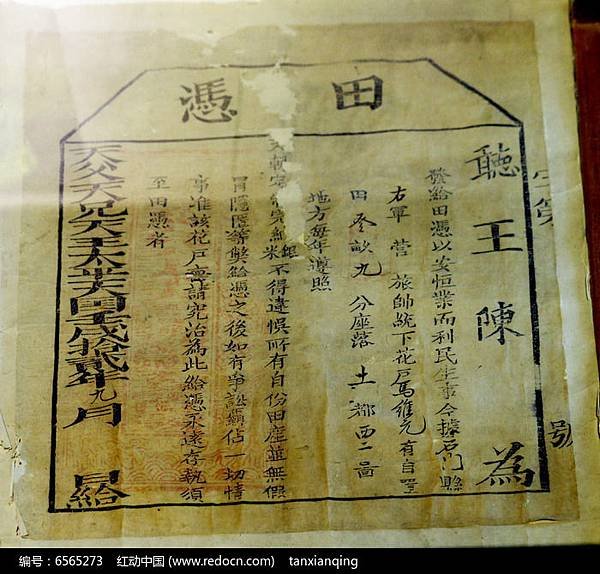 田憑
字第 號
聽王陳 為
發給田憑以安恒業而利民生事今據石門縣
右軍 營 旅帥統下花戶馬維元有自置
田叁畝九 分座落 土 都西二 圖
地方每年遵照
天朝定制完納銀米不得違悞所有自份田產並無假
冒隱匿等獘給憑之後如有爭訟霸佔一切情
事准該花戶稟請究治為此給憑永遠存執須
至田憑者
天父天兄天王太平天囯壬戌拾貳年九月 日給
编号：6565273 红动中国 (www.redocn.com) tanxianqing